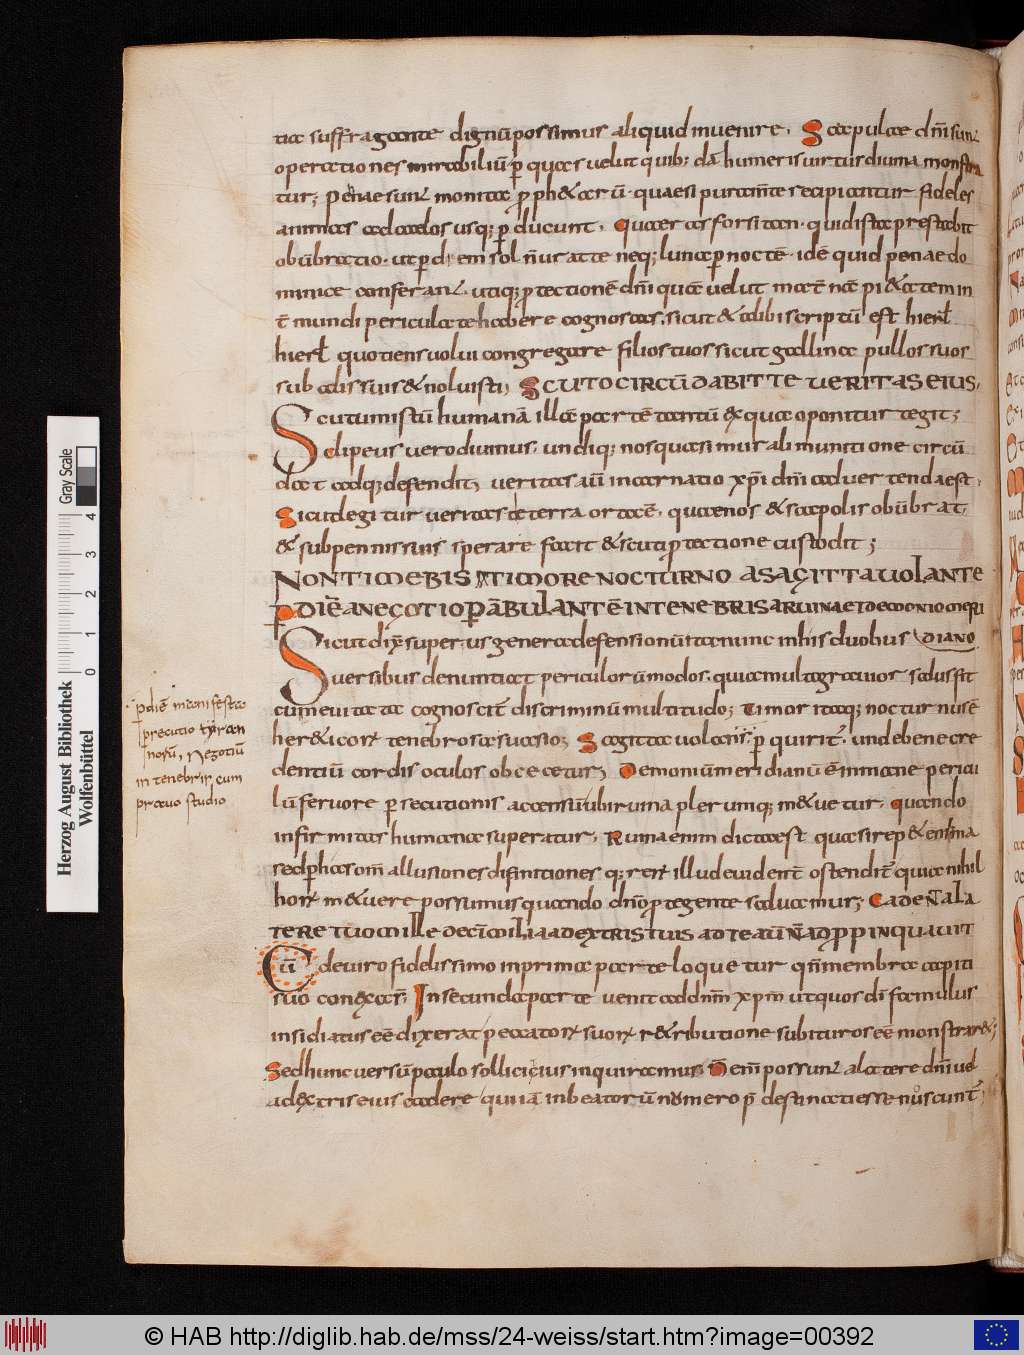 tia suffragante dignū possimus aliquid invenire. Scapulae dn̄i sunt
operationes mirabiliū p̄ quas velut quib; dā humeris virtus divina monstra
tur; pennae sunt monita ꝓph&arū. quae si pura m̄te recipiantur fideles
animas ad caelos usq; ꝑducunt. Quaeras forsitan. quid ista prestabit
obūbratio. ut per diem sol n̄ urat te neq; luna ꝑ noctē. idē quid pennae do
minicae conferant. utiq; ꝓtectionē dn̄i quā velut mat̄nā pi&atem in
t̄ mundi pericula te habere cognoscas. sicut & alibi scriptū est hierl̄
hierl̄ quotiens volui congregare filios tuos sicut gallina pullos suos
sub alis suis & noluisti; SCUTO CIRCŪDABIT TE VERITAS EIUS.
Scutum istū humanū illā partē tantū ex qua opponitur tegit;
clipeus vero divinus. undiq; nos quasi muralī munitione circū
dat adq; defendit; veritas aū incarnatio xp̄i dn̄i advertenda est.
Sicut legitur veritas de terra orta ē. quae nos & scapulis obūbrat.
& sub pennis suis sperare facit & scuti ꝓtectione custodit;
NON TIMEBIS A TIMORE NOCTURNO A SAGITTA VOLANTE
P DIĒ A NEGOTIO PĀBULANTĒ IN TENEBRIS A RUINA ET DEMONIO MERI
DIANO
Sicut dix̄ superius genera defensionū ita nunc in his duobus
versibus denuntiat periculorū modos. quia multo gravior salus fit
cum evitata cognoscit̄ discriminū multitudo; Timor itaq; nocturnus ē
her&icorꝝ tenebrosa suasio; Sagitta volans. p quirit̄. unde bene cre
dentiū cordis oculos obcecetur; Demoniū meridianū ē inmane pericu
lū fervore persecutionis accensū ubi ruina plerumq; m&uetur. Quando
infirmitas humana superatur. Ruina enim dicta est quasi rep&ens ima
sed ꝑ has om̄ allusiones difinitiones q; rerꝝ illud evident̄ ostendit̄ quia nihil
horꝝ m&uere possumus quando dn̄o ꝓtegente salvamur; CADENT A LA
TERE TUO MILLE DECĒ MILIA A DEXTRIS TUIS AD TE AŪ N̄ ADPROPINQUAVIT
Cū de viro fidelissimo in prima parte loquetur qn̄ membra capiti
suo conexa s̄; In secunda parte venit ad dnm̄ xpm̄ ut quos dī famulus
insidiatus eē dixerat peccatorꝝ suorꝝ r&ributione subituros eē monstrar&;
Sed hunc versū paulo sollicitius inquiramus. Qđ enī possunt a latere dn̄i vel
a dextris eius cadere qui iā in beatorū numero p̄destinati esse noscunt̄;
ꝑ diē manifesta
ꝑsecutio tyran
norū, Negotiū
in tenebris, cum
pravo studio
Herzog August Bibliothek
Wolfenbüttel
0 1 2 3 4
Gray Scale
© HAB http://diglib.hab.de/mss/24-weiss/start.htm?image=00392